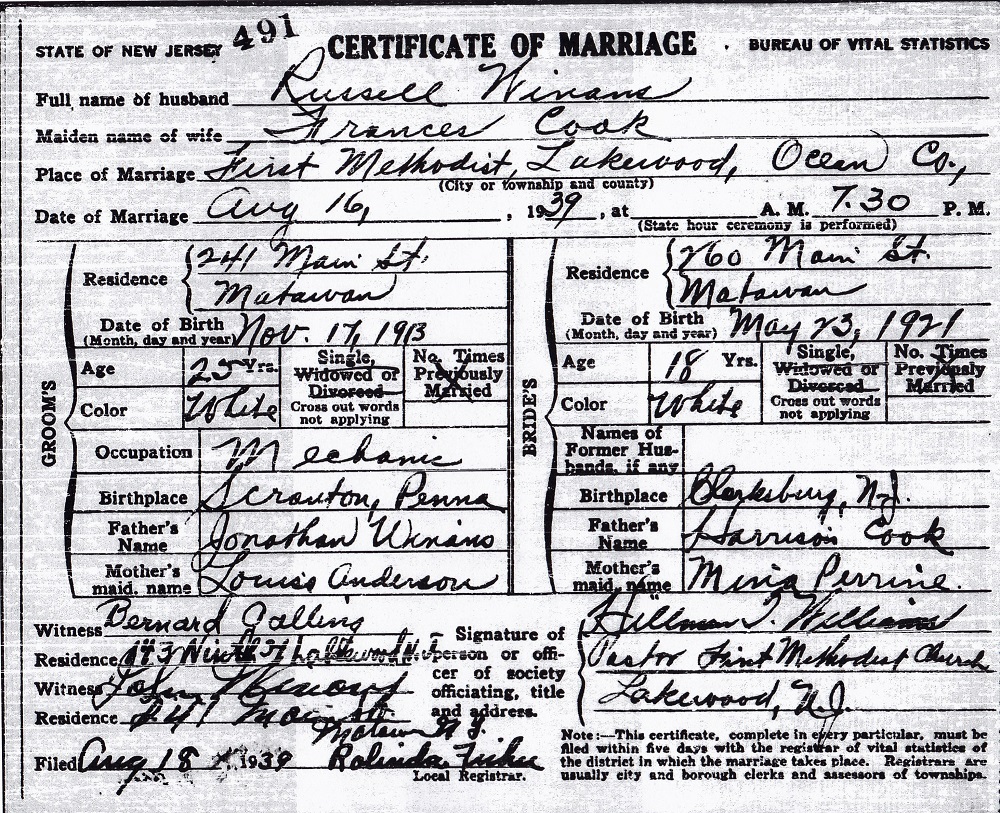 STATE OF NEW JERSEY 491 CERTIFICATE OF MARRIAGE · BUREAU OF VITAL STATISTICS
Full name of husband Russell Winans
Maiden name of wife Frances Cook
Place of Marriage First Methodist, Lakewood, Ocean Co.,
(City or township and county)
Date of Marriage Aug 16, , 1939, at A. M. 7.30 P. M.
(State hour ceremony is performed)
GROOM'S
Residence 241 Main St.
Matawan
Date of Birth Nov. 17, 1913
(Month, day and year)
Age 25 Yrs. Single, Widowed or Divorced No. Times Previously Married
Color White Cross out words not applying
Occupation Mechanic
Birthplace Scranton, Penna
Father's Name Jonathan Winans
Mother's maid. name Louise Anderson
BRIDE'S
Residence 260 Main St.
Matawan
Date of Birth May 23, 1921
(Month, day and year)
Age 18 Yrs. Single, Widowed or Divorced No. Times Previously Married
Color White Cross out words not applying
Names of Former Husbands, if any
Birthplace Clarksburg, N.J.
Father's Name Harrison Cook
Mother's maid. name Mina Perrine.
Witness Bernard Gallins
Residence 143 Ninth St Lakewood N.J.
Witness John Winans
Residence 241 Main St
Matawan N.J.
Filed Aug 18 1939
Local Registrar.
Signature of person or officer of society officiating, title and address.
Hillman T. Williams
Pastor First Methodist Church
Lakewood, N.J.
Note:—This certificate, complete in every particular, must be
filed within five days with the registrar of vital statistics of
the district in which the marriage takes place. Registrars are
usually city and borough clerks and assessors of townships.